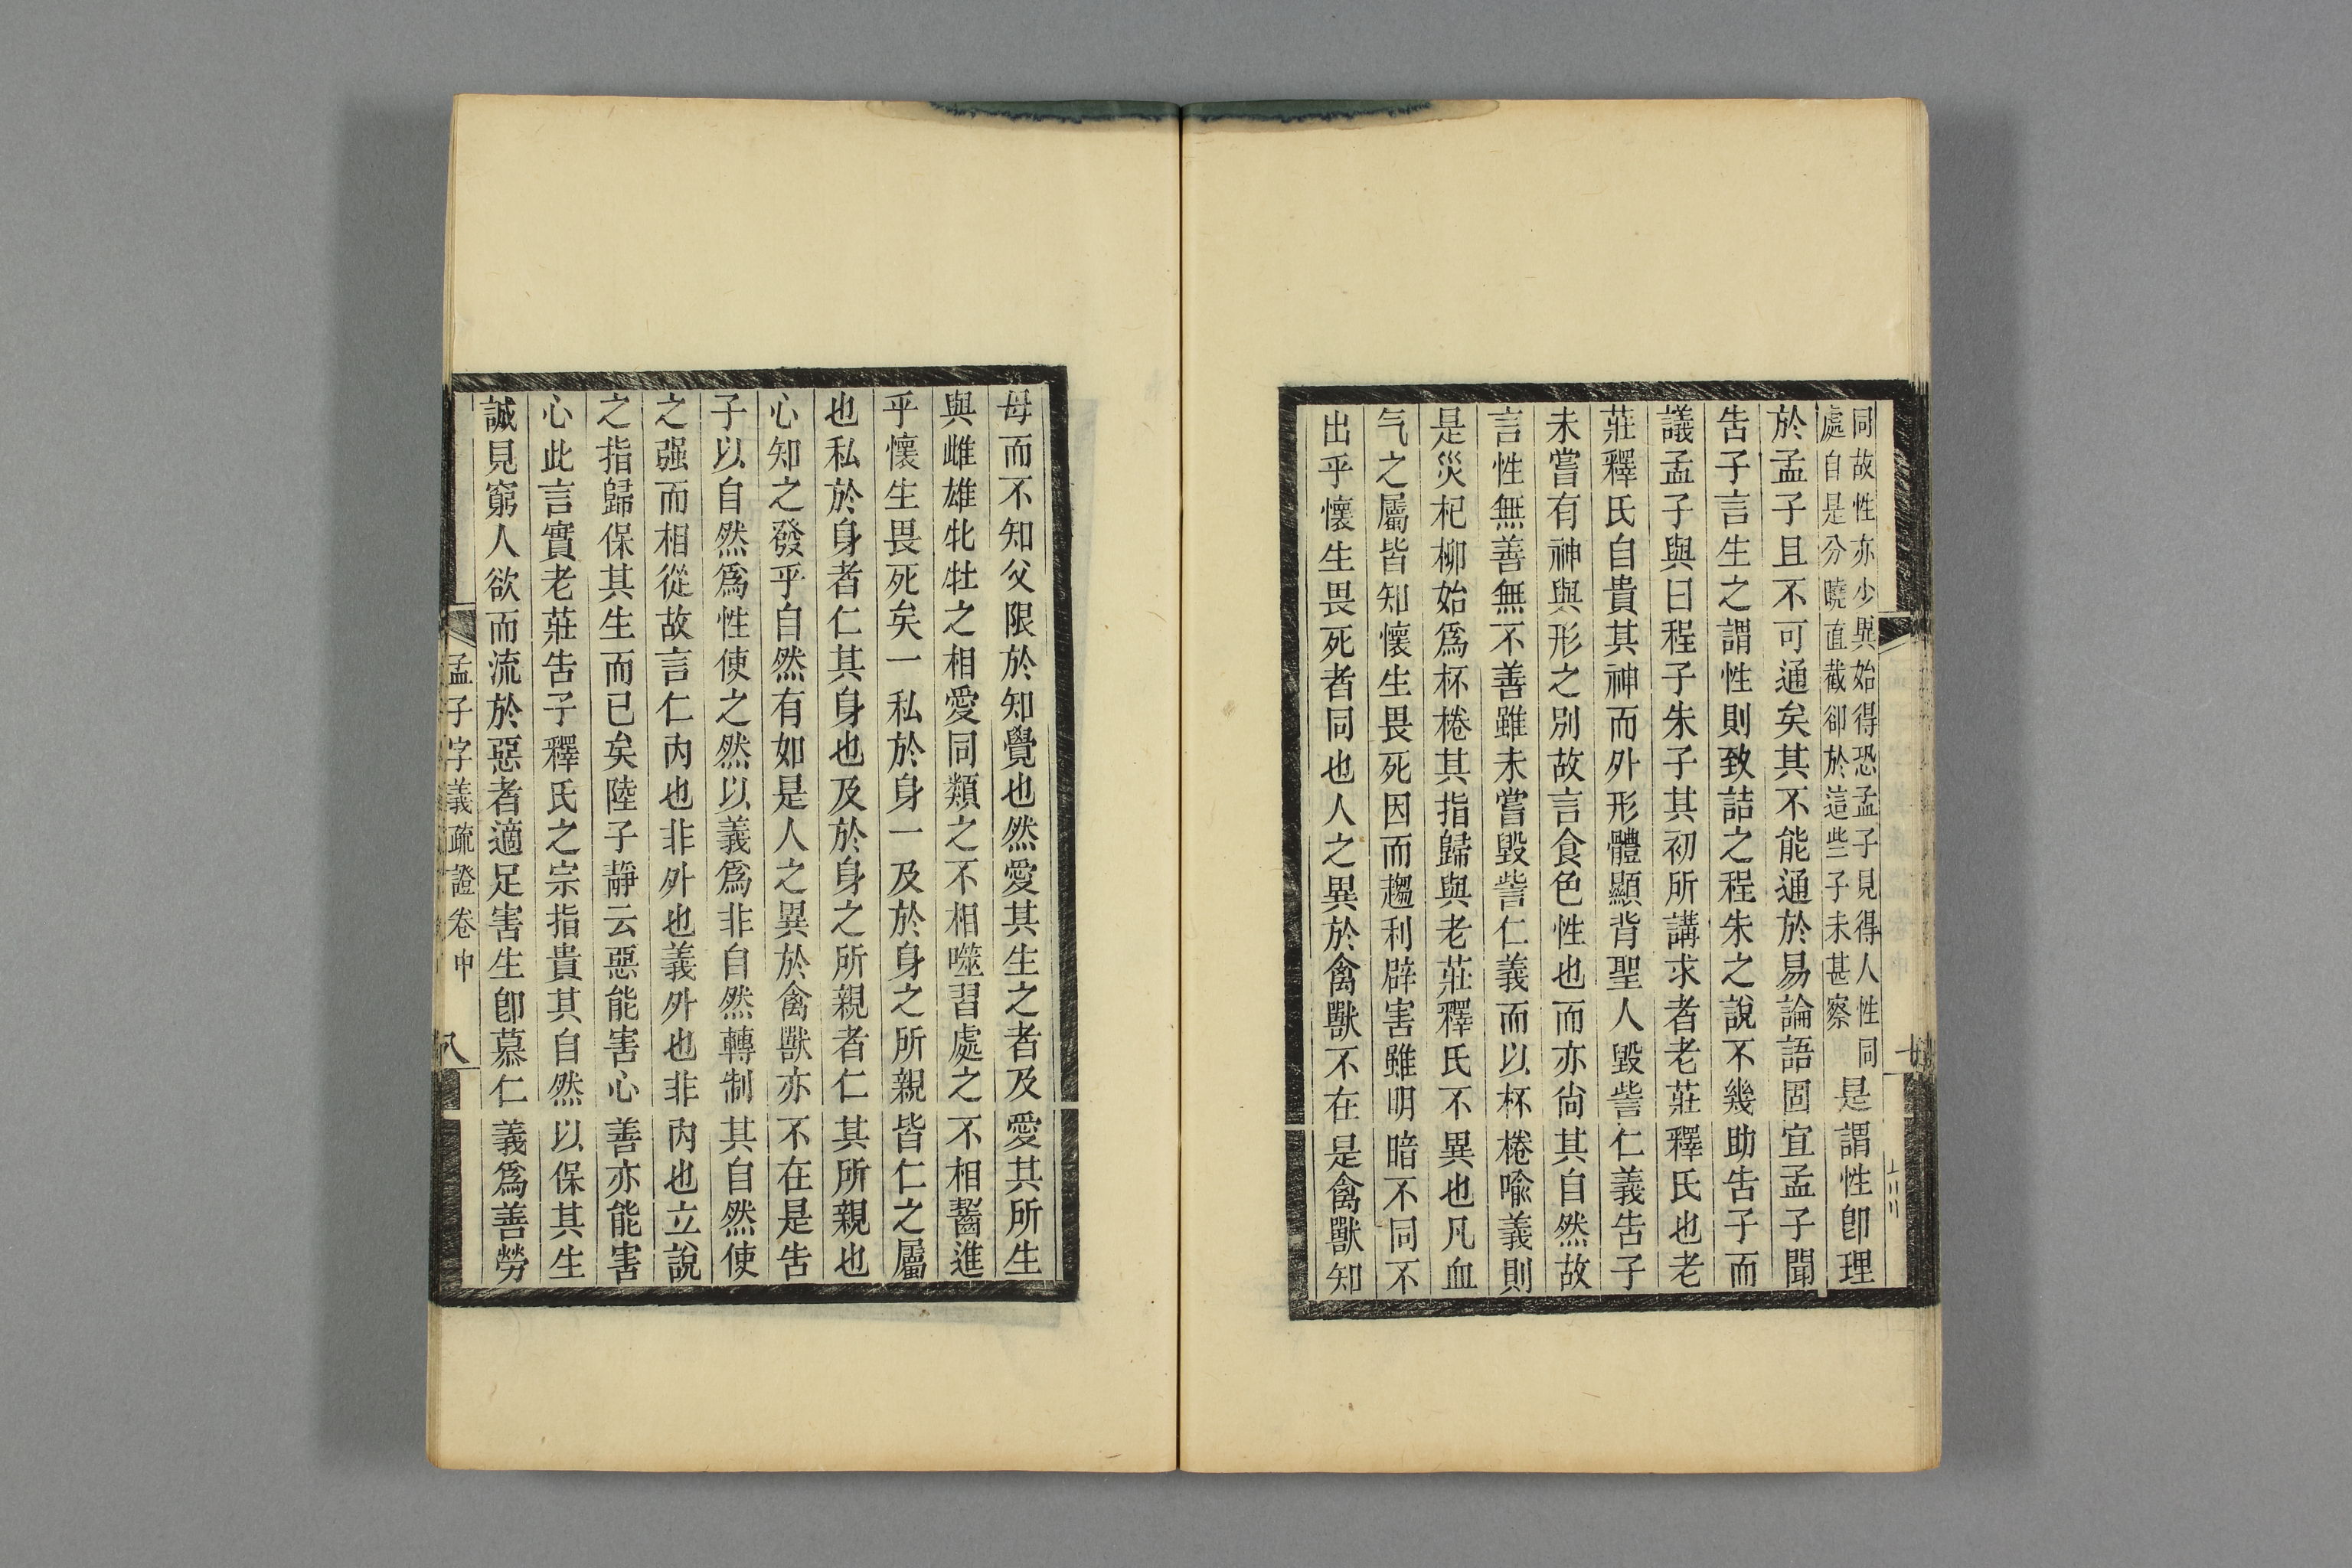 同故性亦少異始得恐孟子見得人性同
處自是分曉直截卻於這些子未甚察
是謂性卽理
於孟子且不可通矣其不能通於易論語固宜孟子聞
告子言生之謂性則致詰之程朱之說不幾助告子而
議孟子與曰程子朱子其初所講求者老莊釋氏也老
莊釋氏自貴其神而外形體顯背聖人毀訾仁義告子
未嘗有神與形之別故言食色性也而亦尙其自然故
言性無善無不善雖未嘗毀訾仁義而以杯棬喩義則
是災杞柳始爲杯棬其指歸與老莊釋氏不異也凡血
气之屬皆知懷生畏死因而趨利辟害雖明暗不同不
出乎懷生畏死者同也人之異於禽獸不在是禽獸知
母而不知父限於知覺也然愛其生之者及愛其所生
與雌雄牝牡之相愛同類之不相噬習處之不相齧進
乎懷生畏死矣一私於身一及於身之所親皆仁之屬
也私於身者仁其身也及於身之所親者仁其所親也
心知之發乎自然有如是人之異於禽獸亦不在是告
子以自然爲性使之然以義爲非自然轉制其自然使
之强而相從故言仁內也非外也義外也非內也立說
之指歸保其生而已矣陸子靜云惡能害心善亦能害
心此言實老莊告子釋氏之宗指貴其自然以保其生
誠見窮人欲而流於惡者適足害生卽慕仁義爲善勞
孟子字義疏證卷中
八